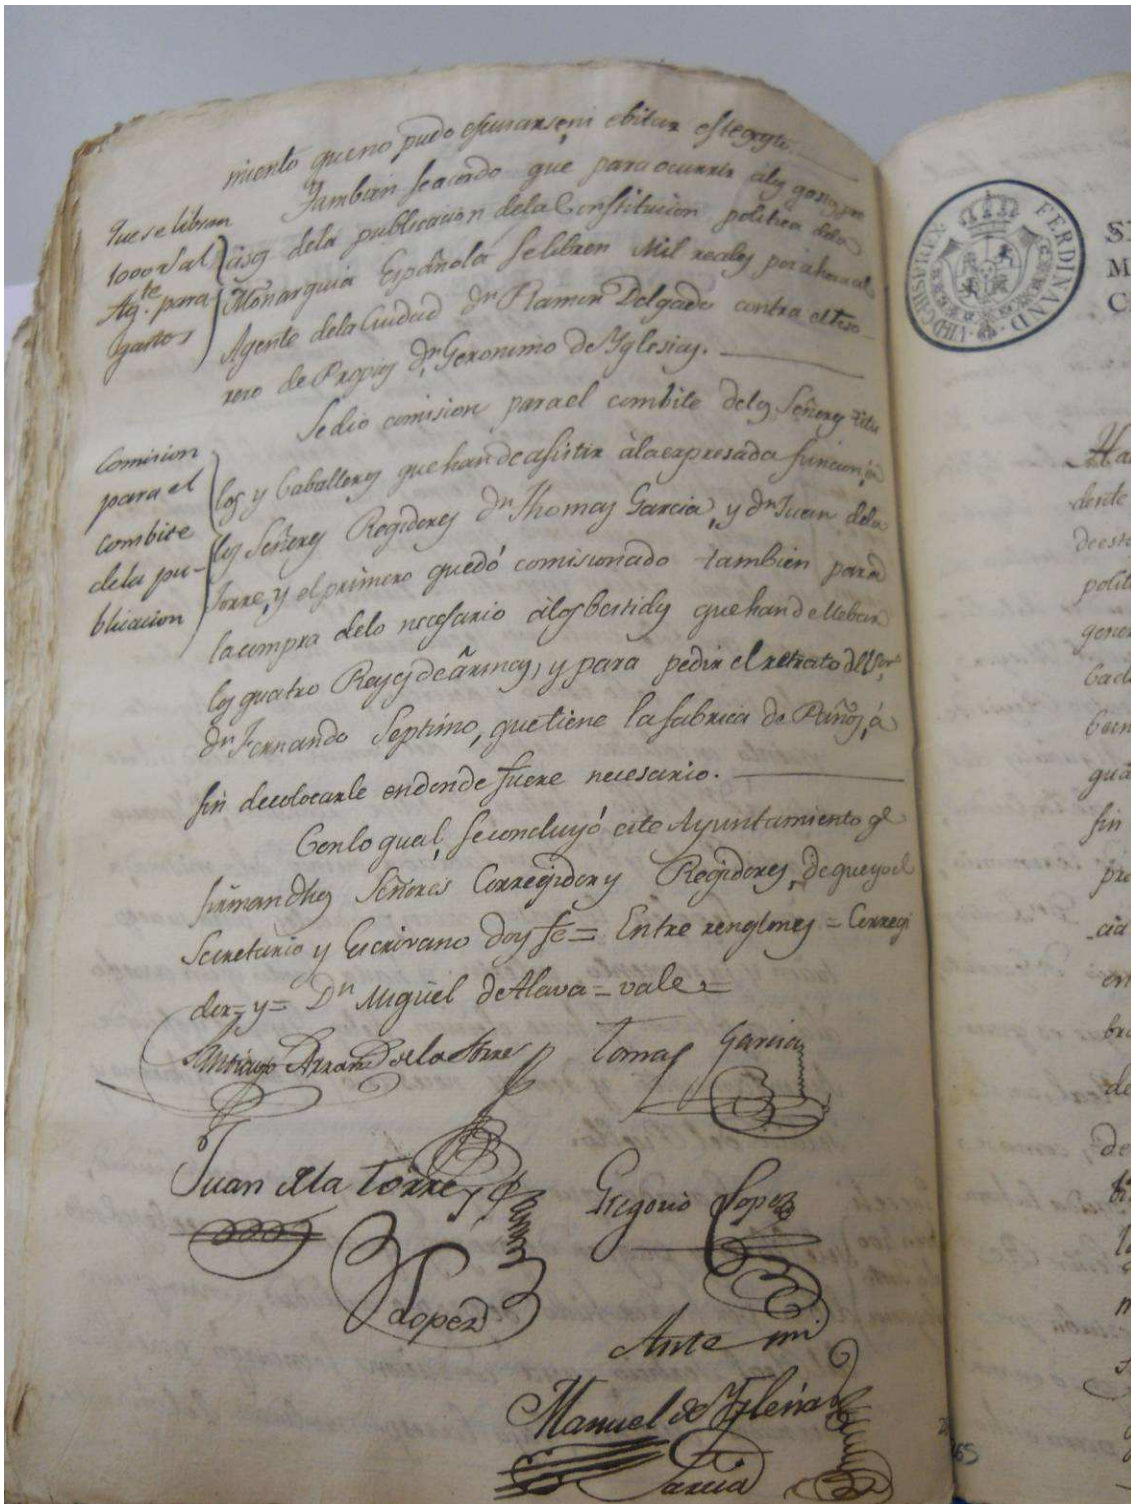 miento que no pudo escusarse, ni ebitar este gasto.
Tambien se acordo que para ocurrir á los gastos
de la publicacion de la Constitucion politica de la
Monarquia Española se libren Mil reales por ahora al
Agente de la Ciudad Dn Ramon Delgado contra el teso
rero de Propios Dn Geronimo de Yglesias.
Que se libran
1000 rs al
Agte. para
gastos
Se dio comision para el combite de los Señores Titu
los y Caballeros que han de asistir à la expresada funcion á
los Señores Regidores Dn Thomas Garcia, y Dn Juan de la
Torre, y el primero quedó comisionado tambien para
la compra de lo necesario á los bestidos que han de llebar
los quatro Reyes de armas, y para pedir el retrato del Sor
Dn Fernando Septimo, que tiene la fabrica de Paños, á
fin de colocarle en donde fuere necesario.
Comision
para el
combite
de la pu-
blicacion
Con lo qual, se concluyó este Ayuntamiento qe
firman dhos Señores Corregidor y Regidores, de que yo el
Secretario y Escrivano doy fe = Entre renglones = Corregi
dor = y = Dn Miguel de Alava = vale =
Santiago de la Torre
Tomas Garcia
Juan de la Torre
Gregorio Lopez
Lopez
Ante mi
Manuel de Yglesias
Garcia
FERDINAND · VII · D · G · HISP · REX
S
M
C
Ha
desde
de est
polit
gener
gua
fin
pre
cia
en
de
65